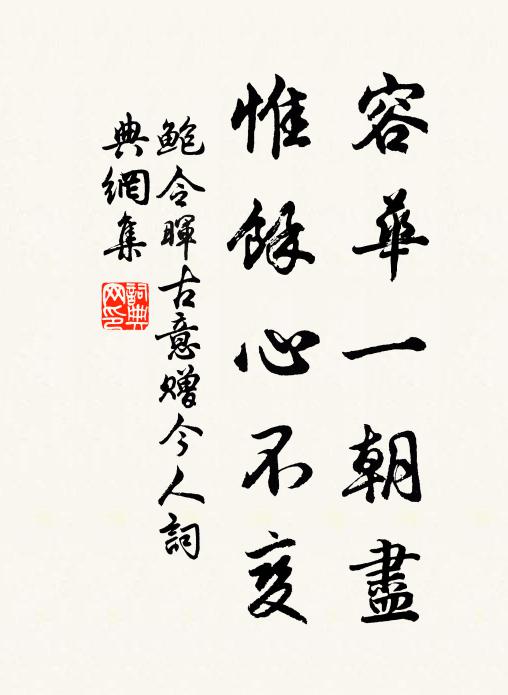 容華一朝盡
惟餘心不変
鮑令暉古意贈今人詞
典網集
詞典网印